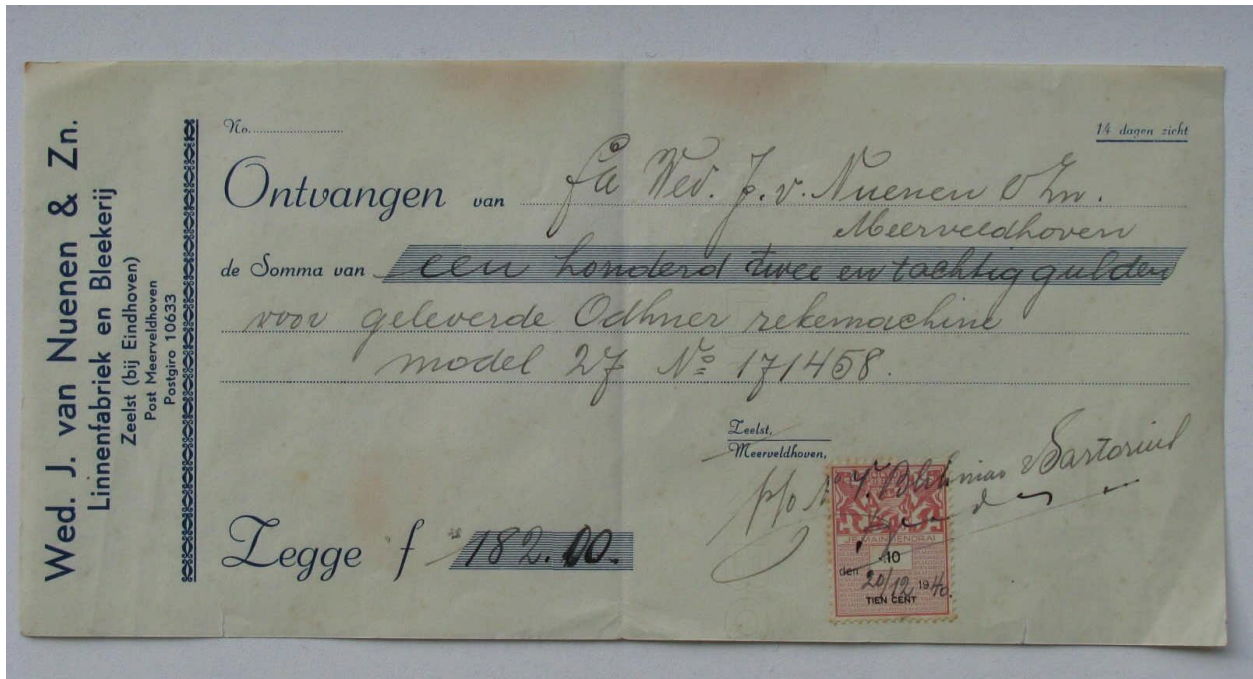 Wed. J. van Nuenen & Zn.
Linnenfabriek en Bleekerij
Zeelst (bij Eindhoven)
Post Meerveldhoven
Postgiro 10633
No.
14 dagen zicht
Ontvangen van fa Wed. J. v. Nuenen & Zn.
Meerveldhoven
de Somma van een honderd twee en tachtig gulden
voor geleverde Odhner rekemachine
model 27 No 171458.
Zeelst,
Meerveldhoven,
p/o Sartorius
JE MAINTIENDRAI
.10
den 20/12 1940.
TIEN CENT
Zegge f 182.00.